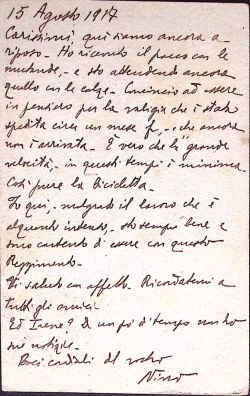 15 Agosto 1917
Carissimi, qui siamo ancora a
riposo. Ho ricevuto il pacco con le
mutande, e sto attendendo ancora
quello con le calze. Comincio ad essere
in pensiero per la valigia che è stata
spedita circa un mese fa, e che ancora
non è arrivata. È vero che la grande
velocità, in questi tempi è minima.
Così pure la bicicletta.
Io qui, malgrado il lavoro che è
alquanto intenso, sto tempo bene e
sono contento di essere con questo
Reggimento.
Vi saluto con affetto. Ricordatemi a
tutti gli amici.
Ed Irene? È un po' di tempo non ho
sue notizie.
Baci cordiali dal vostro
Nino